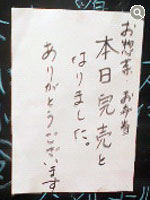 お惣菜 お弁当
本日完売と
なりました。
ありがとうございます